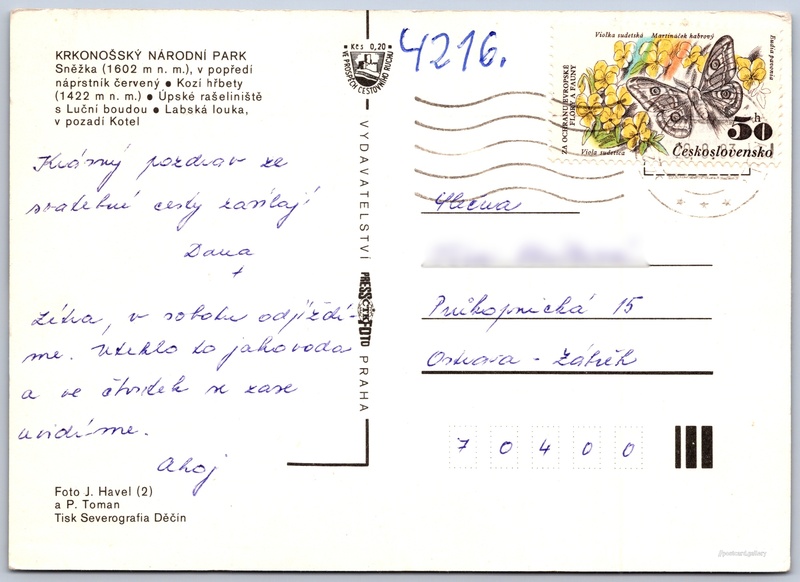 KRKONOŠSKÝ NÁRODNÍ PARK
Sněžka (1602 m n. m.), v popředí
náprstník červený • Kozí hřbety
(1422 m n. m.) • Úpské rašeliniště
s Luční boudou • Labská louka,
v pozadí Kotel
Krásný pozdrav ze
svatební cesty zasílají
Dana
+
Zítra, v sobotu odjíždí-
me. Uteklo to jako voda
a ve čtvrtek se zase
uvidíme.
Ahoj
Foto J. Havel (2)
a P. Toman
Tisk Severografia Děčín
Kčs 0,20
VE PROSPĚCH CESTOVNÍHO RUCHU
VYDAVATELSTVÍ
PRESSFOTO
ČTK
PRAHA
4216.
Violka sudetská Martináček habrový
Eudia pavonia
ZA OCHRANU EVROPSKÉ
FLÓRY A FAUNY
Viola sudetica
50 h
Československo
Slečna
Průkopnická 15
Ostrava - Zábřeh
7 0 4 0 0
//postcard.gallery